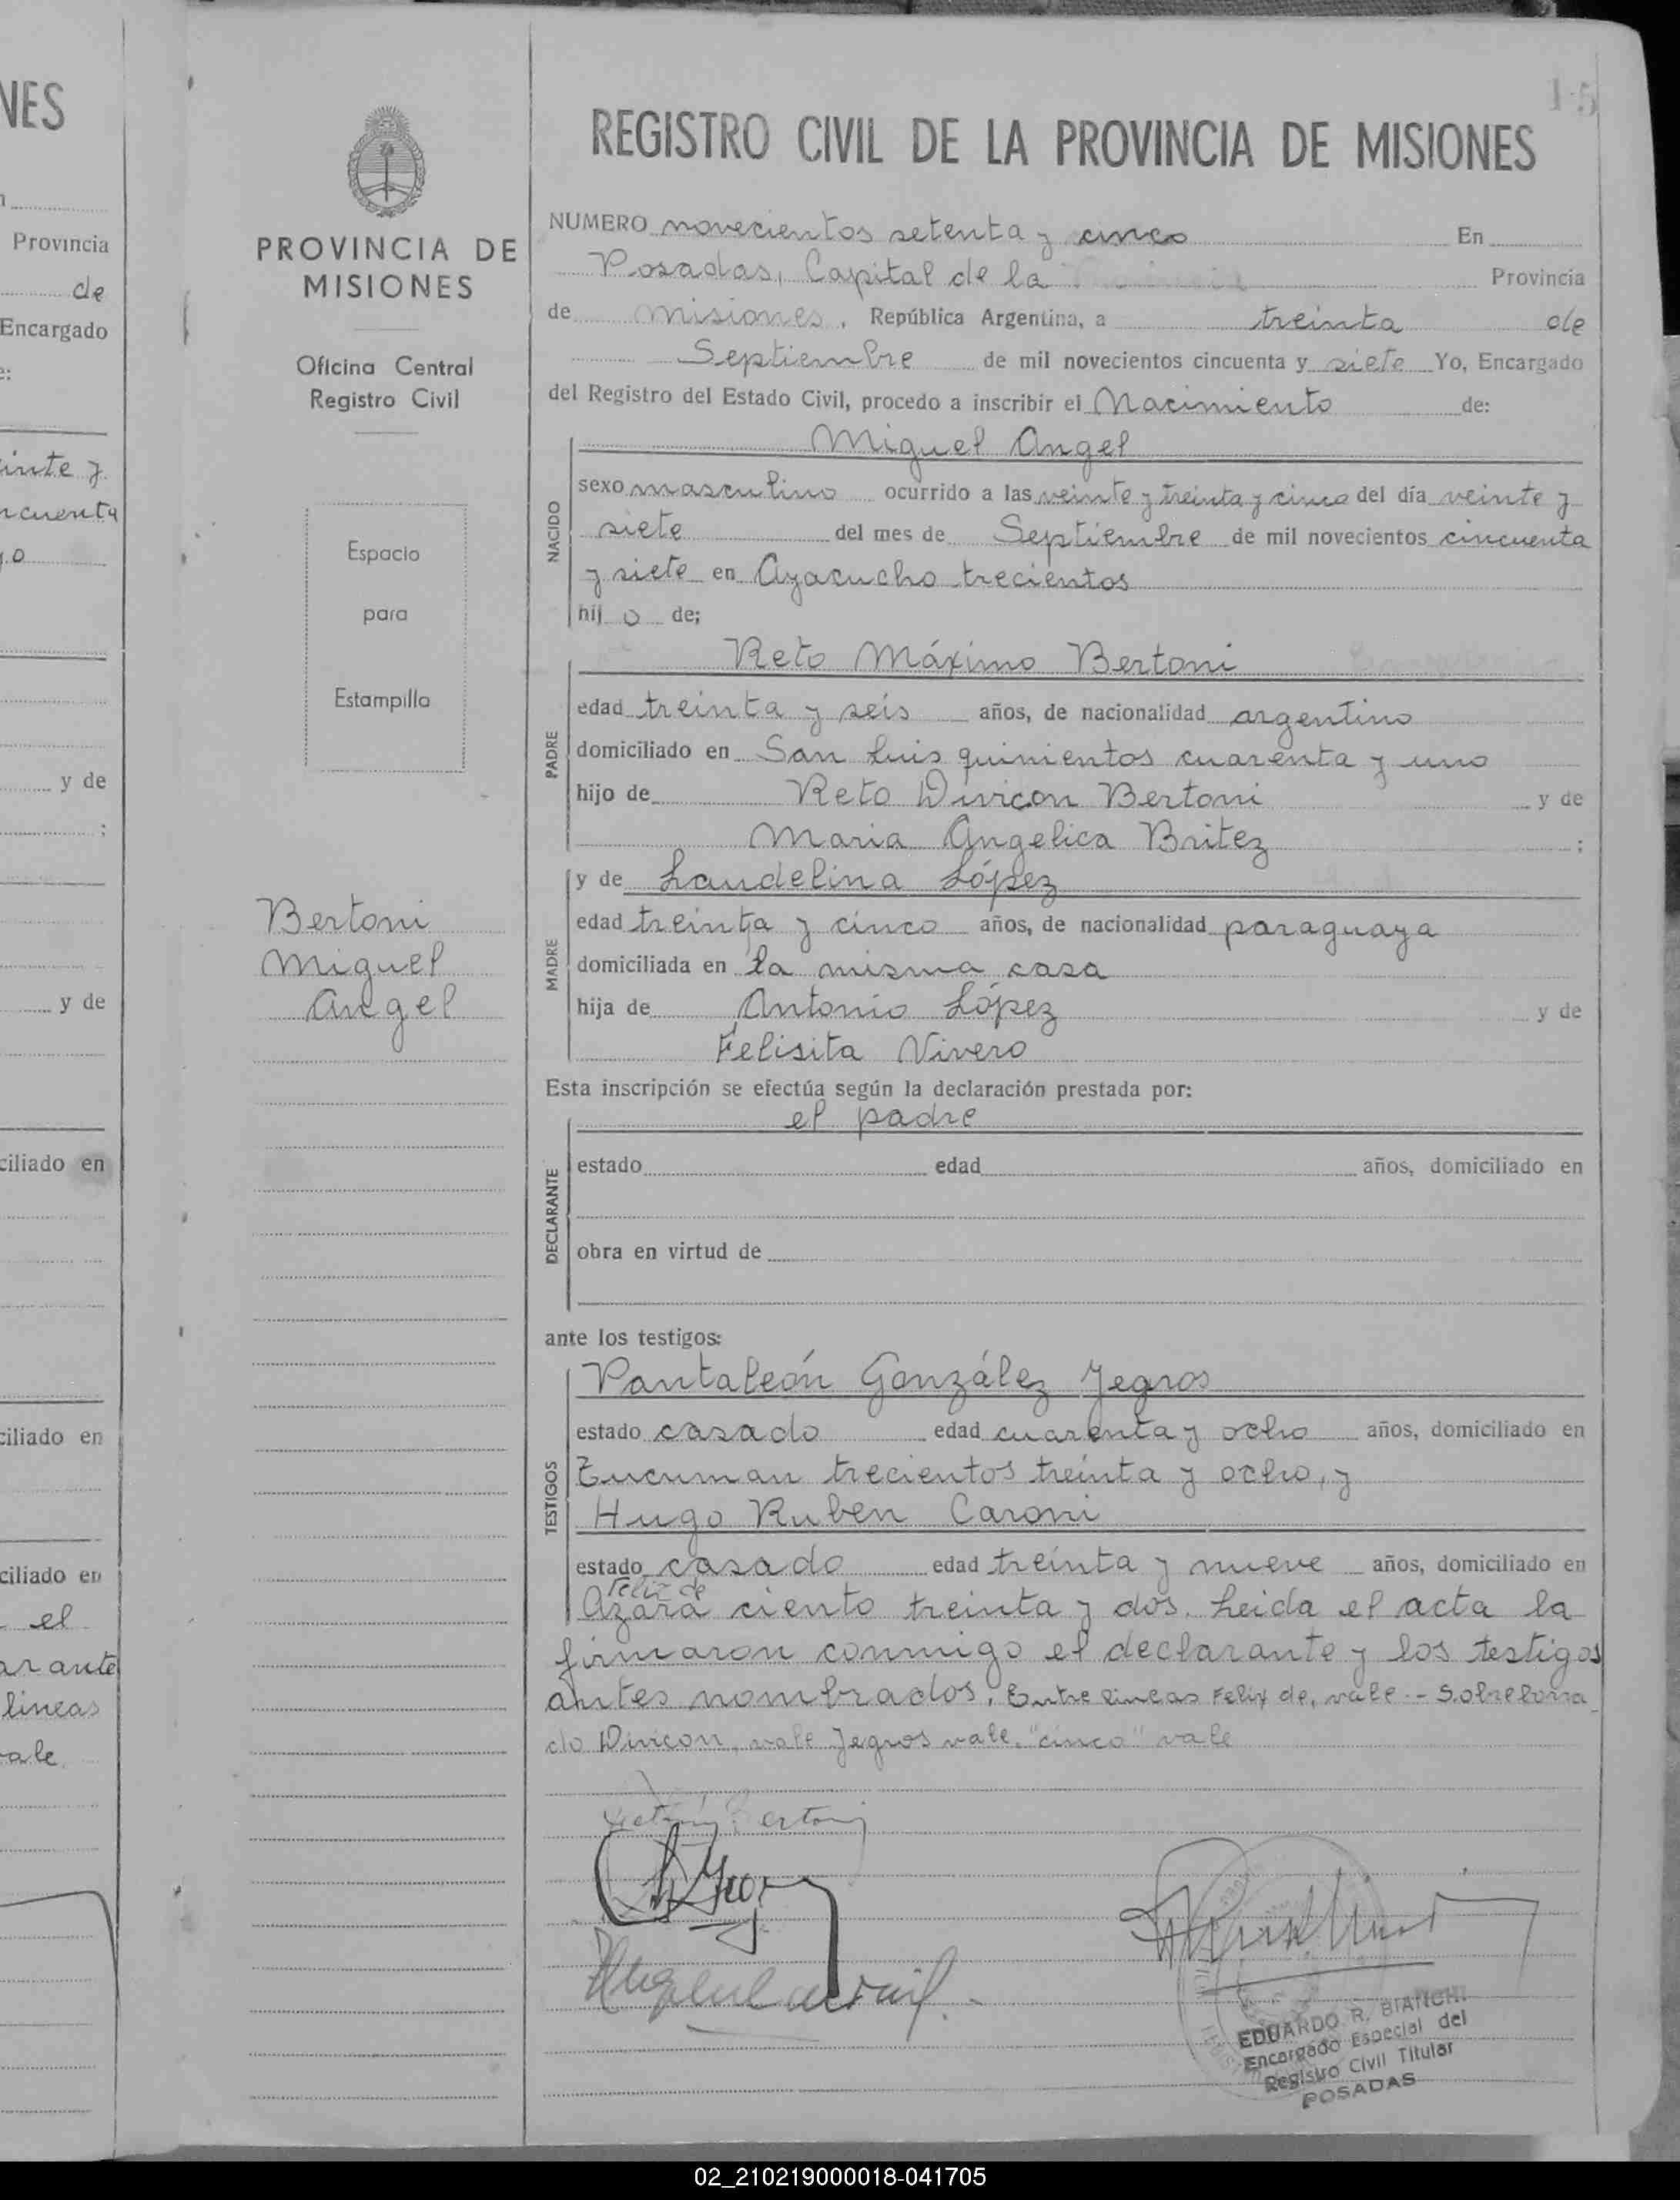 NES
Provincia
de
Encargado
inte y
ncuenta
y de
y de
ciliado en
ciliado en
ciliado en
el
ar ante
lineas
vale
15
PROVINCIA DE
MISIONES
Oficina Central
Registro Civil
Espacio
para
Estampilla
Bertoni
Miguel
Angel
REGISTRO CIVIL DE LA PROVINCIA DE MISIONES
NUMERO novecientos setenta y cinco En
Posadas, Capital de la Provincia
de Misiones, República Argentina, a treinta de
Septiembre de mil novecientos cincuenta y siete Yo, Encargado
del Registro del Estado Civil, procedo a inscribir el Nacimiento de:
NACIDO
Miguel Angel
sexo masculino ocurrido a las veinte y treinta y cinco del día veinte y
siete del mes de Septiembre de mil novecientos cincuenta
y siete en Ayacucho trecientos
hij o de;
PADRE
Reto Máximo Bertoni
edad treinta y seis años, de nacionalidad argentino
domiciliado en San Luis quinientos cuarenta y uno
hijo de Reto Divicon Bertoni y de
Maria Angelica Britez ;
MADRE
y de Laudelina López
edad treinta y cinco años, de nacionalidad paraguaya
domiciliada en la misma casa
hija de Antonio López y de
Felisita Vivero
Esta inscripción se efectúa según la declaración prestada por:
DECLARANTE
el padre
estado edad años, domiciliado en
obra en virtud de
ante los testigos:
TESTIGOS
Pantaleón González Jegros
estado casado edad cuarenta y ocho años, domiciliado en
Tucuman trecientos treinta y ocho, y
Hugo Ruben Caroni
estado casado edad treinta y nueve años, domiciliado en
Felix de
Azara ciento treinta y dos. Leida el acta la
firmaron conmigo el declarante y los testigos
antes nombrados. Entre lineas Felix de, vale.- Sobreborra
do Divicon, vale Jegros vale. "cinco" vale
EDUARDO R. BIANCHI
Encargado Especial del
Registro Civil Titular
POSADAS
02_210219000018-041705